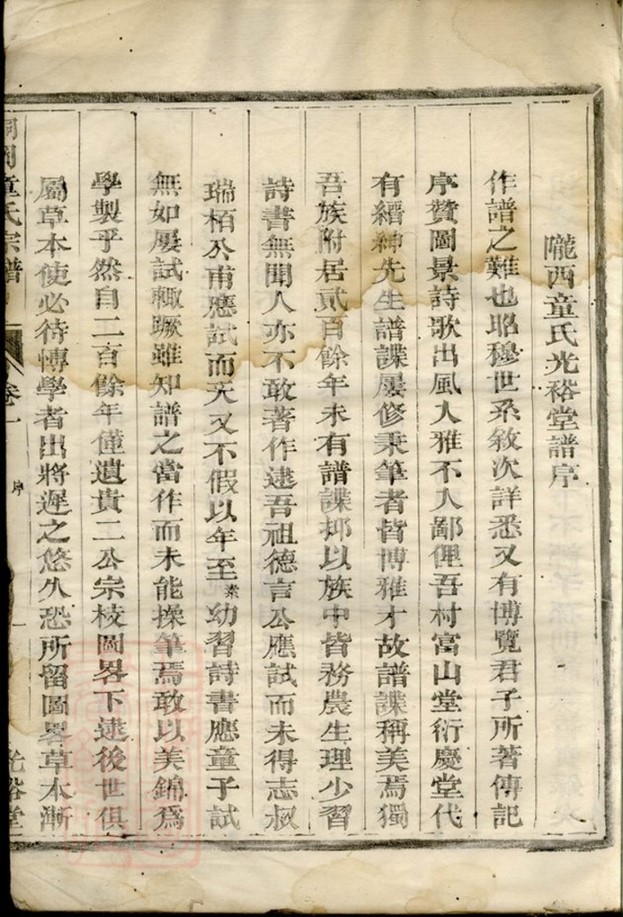 隴西童氏光裕堂譜序
作譜之難也昭穆世系敘次詳悉又有博覽君子所著傳記
序贊圖景詩歌出風入雅不入鄙俚吾村富山堂衍慶堂代
有縉紳先生譜諜屢修秉筆者皆博雅才故譜諜稱美焉獨
吾族附居貳百餘年未有譜諜抑以族中皆務農生理少習
詩書無聞人亦不敢著作逮吾祖德言公應試而未得志叔
瑞栢公甫應試而天又不假以年至業幼習詩書應童子試
無如屢試輒蹶雖知譜之當作而未能操筆焉敢以美錦爲
學製乎然自二百餘年僅遺貴二公宗枝圖畧下逮後世俱
屬草本使必待博學者出將遲之悠久恐所留圖畧草本漸
童氏宗譜 卷一 序 一 光裕堂